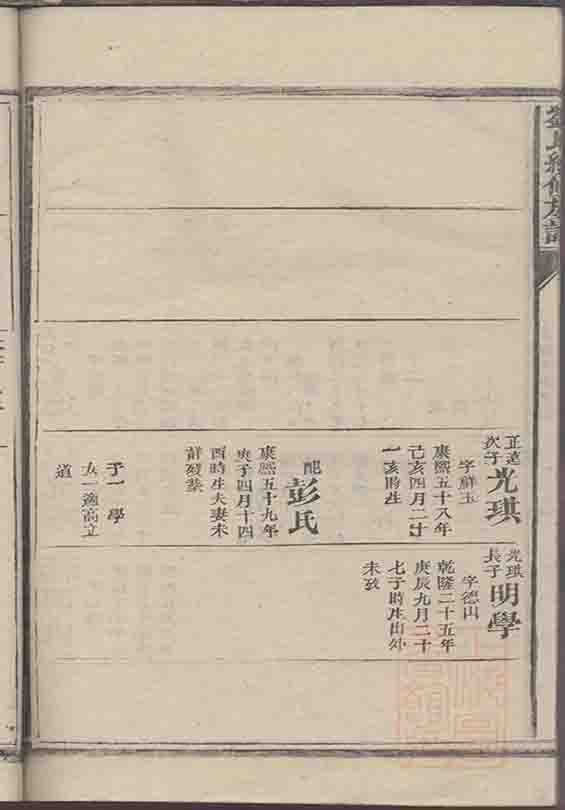 氏修族譜
正達
次子
光琪
字鮮玉
康熙五十八年
己亥四月二十
一亥時生
配彭氏
康熙五十九年
庚子四月十四
酉時生夫妻未
詳殁葬
子一 學
女一適高立
道
光琪
長子
明學
字德山
乾隆二十五年
庚辰九月二十
七子時生出外
未攷